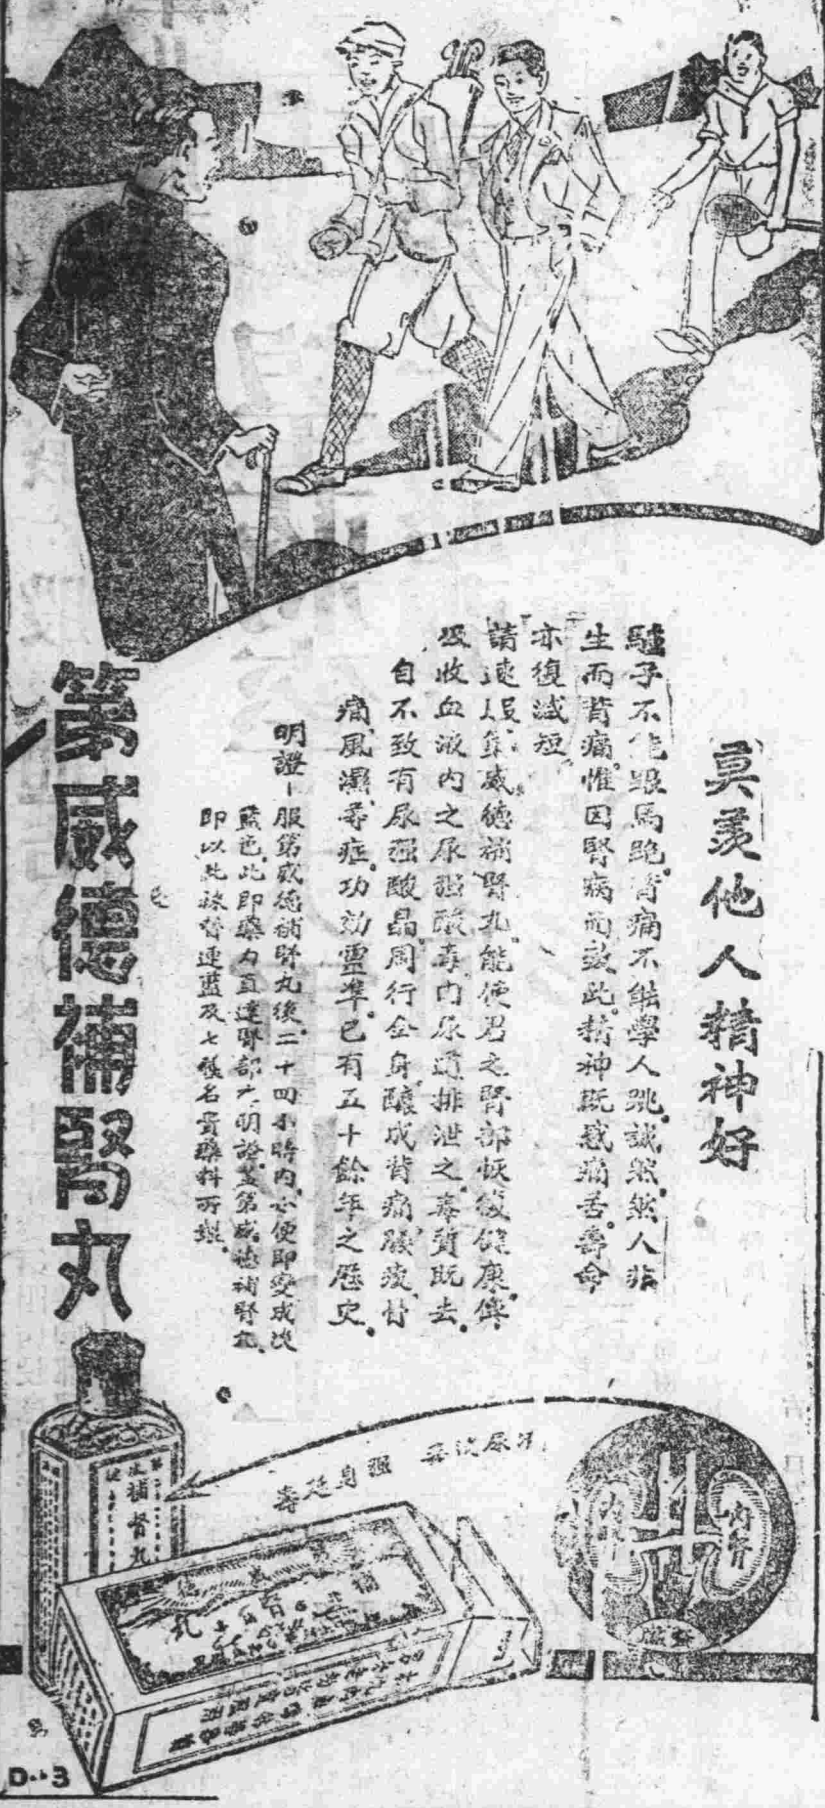 莫羨他人精神好
驢子不能跟馬跑。背痛不能學人跳。誠然。然人非
生而背痛。惟因腎病而致此。精神既感痛苦。壽命
亦復減短。
請速服第威德補腎丸。能使君之腎部恢復健康。俾
吸收血液內之尿强酸毒。由尿道排泄之。毒質既去。
自不致有尿强酸晶。周行全身。釀成背痛、腰痠、骨
痛、風濕等症。功効靈準。已有五十餘年之歷史。
明證－服第威德補腎丸後。二十四小時內。小便即變成淡
藍色。此即藥力直達腎部之明證。蓋第威德補腎丸、
即以此
及七種名貴藥料所製。
第威德補腎丸
清尿
强身延壽
補腎丸
內腎
D-3